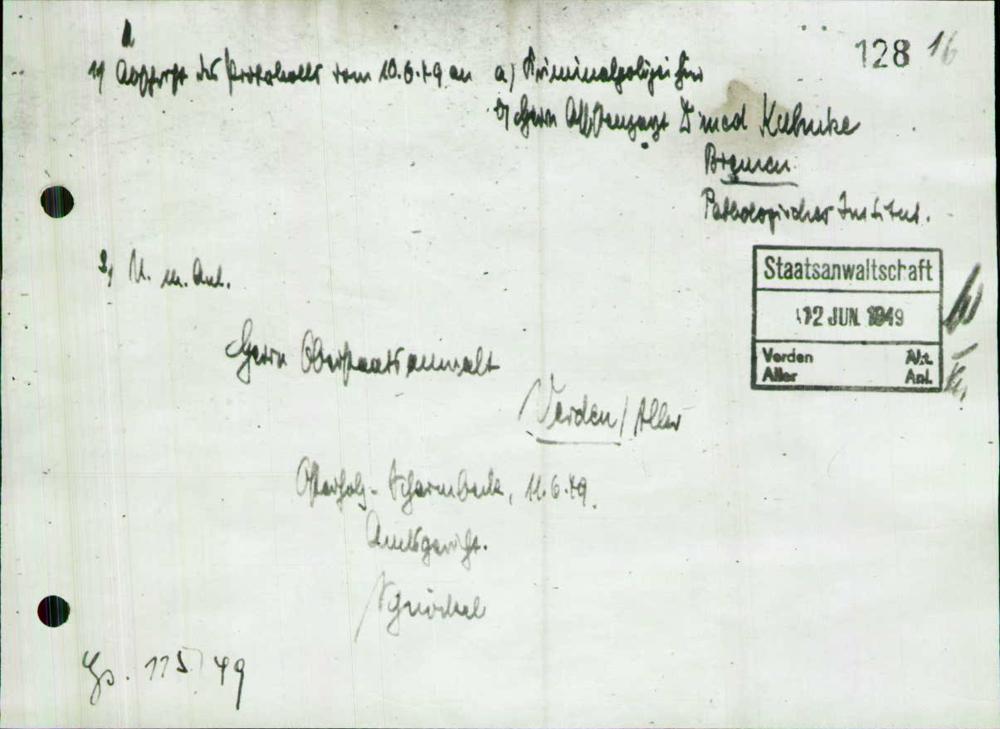 128 16
1) Abschrift des Protokolls vom 10.6.49 an a) Kriminalpolizei hier
b) Herrn Dr med Kuhnke
Bremen
Pathologisches Institut.
2) U. m. Anl.
Staatsanwaltschaft
12 JUN. 1949
Verden Akt.
Aller Anl.
Herrn Oberstaatsanwalt
Verden / Aller
Osterholz-Scharmbeck, 11.6.49.
Amtsgericht.
Gs. 115/49